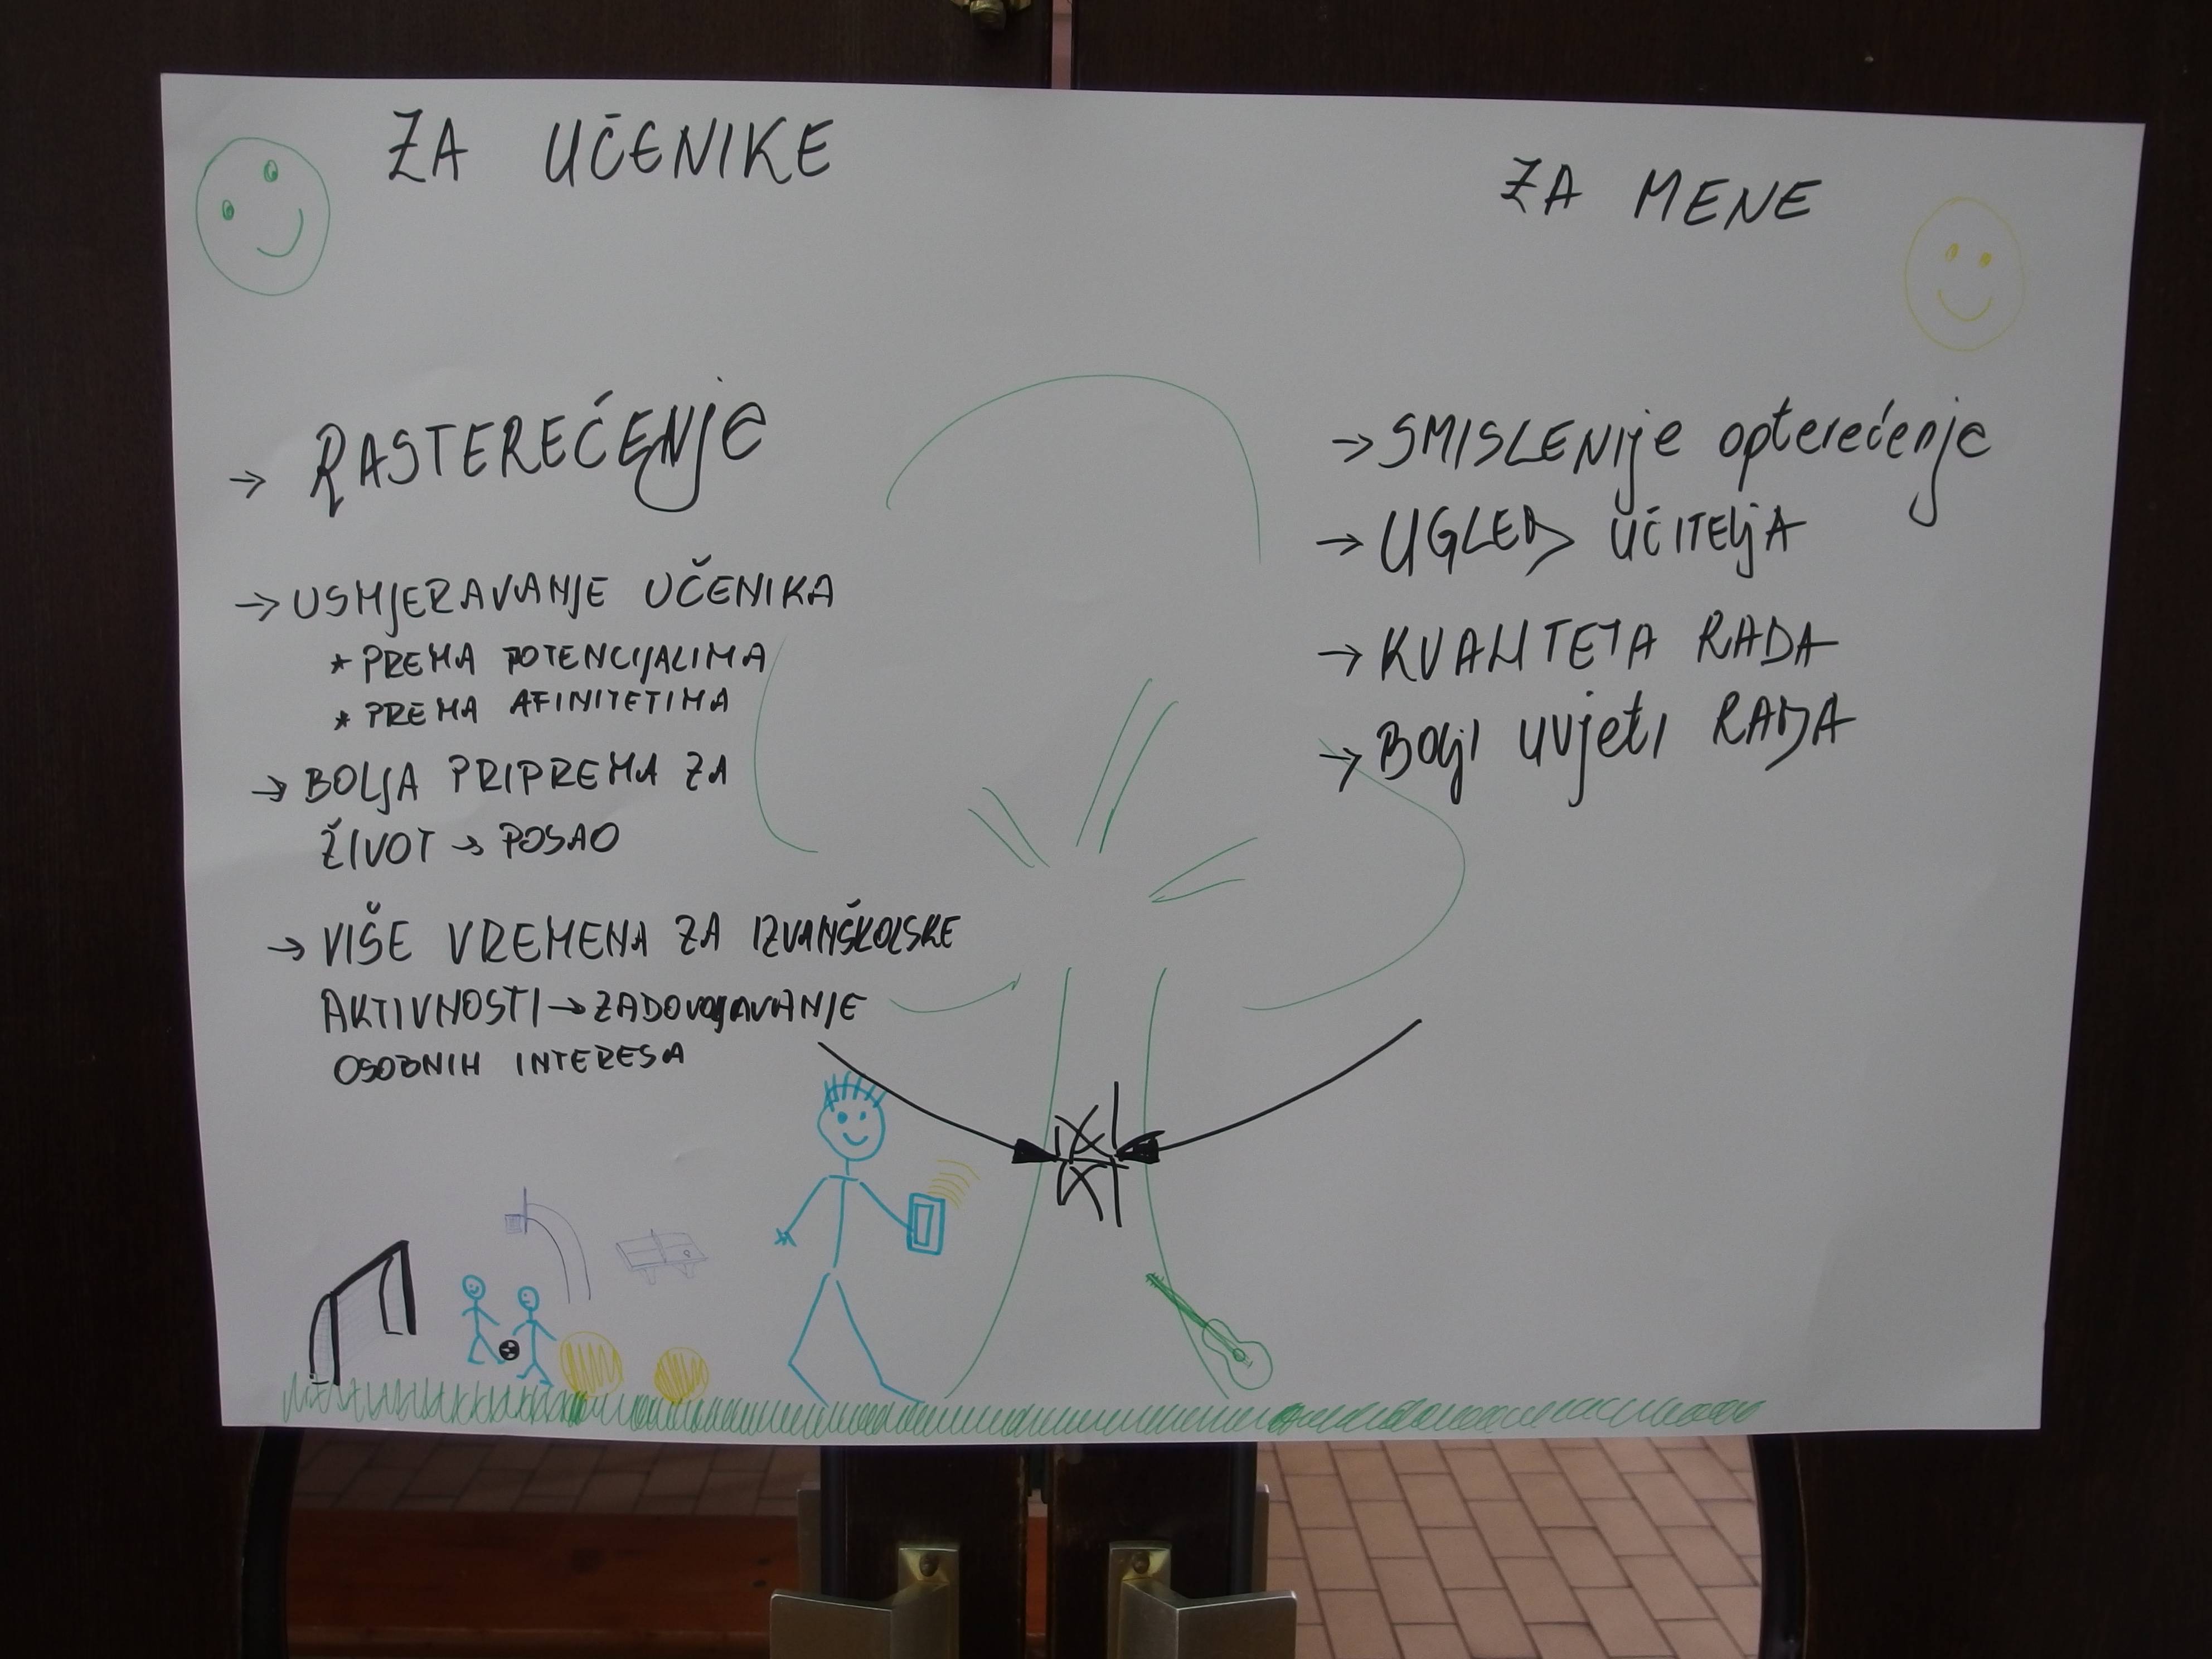 ZA UČENIKE
→ RASTEREĆENJE
→ USMJERAVANJE UČENIKA
* PREMA POTENCIJALIMA
* PREMA AFINITETIMA
→ BOLJA PRIPREMA ZA
ŽIVOT → POSAO
→ VIŠE VREMENA ZA IZVANŠKOLSKE
AKTIVNOSTI → ZADOVOLJAVANJE
OSOBNIH INTERESA
ZA MENE
→ SMISLENIje opterećenje
→ UGLED UČITELJA
→ KVALITETA RADA
→ BOljI uvjeti RADA